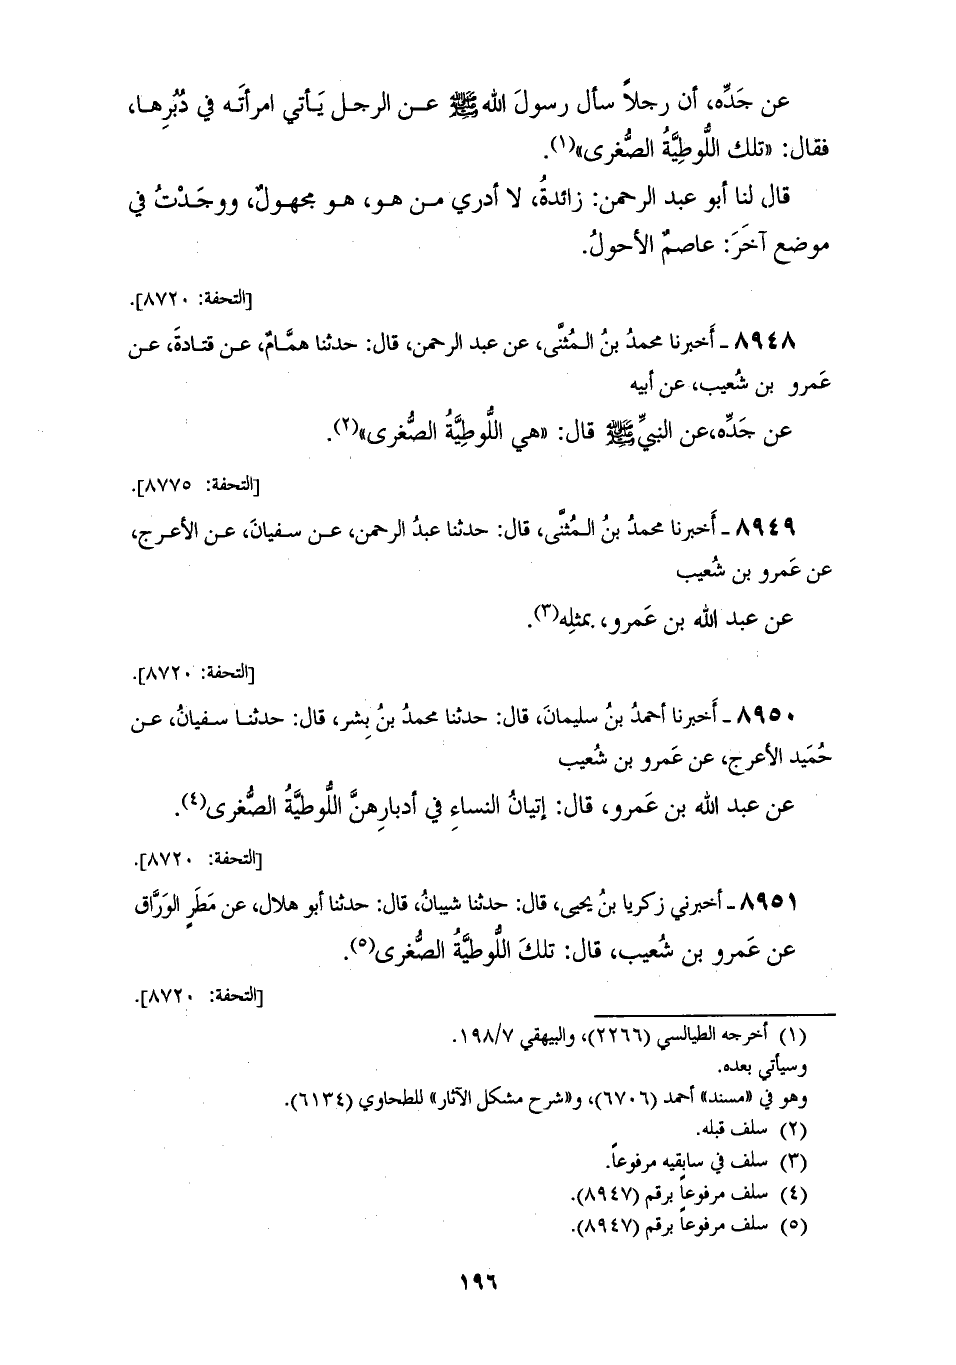 عن جَدِّه، أن رجلاً سأل رسولَ الله ﷺ عـن الرجـل يَـأتي امرأتَـه في دُبُرِهـا،
فقال: «تلك اللُّوطِيَّةُ الصُّغرى»(١).
قال لنا أبو عبد الرحمن: زائدةُ، لا أدري مـن هـو، هـو مجهـولٌ، ووجَـدْتُ في
موضع آخَرَ: عاصمٌ الأحولُ.
[التحفة: ٨٧٢٠].
٨٩٤٨ ـ أَخبرنا محمدُ بنُ الـمُثنَّى، عن عبد الرحمن، قال: حدثنا همَّـامٌ، عـن قتـادةَ، عـن
عَمرو بن شُعيب، عن أبيه
عن جَدِّه،عن النبيِّ ﷺ قال: «هي اللُّوطِيَّةُ الصُّغرى»(٢).
[التحفة: ٨٧٧٥].
٨٩٤٩ ـ أَخبرنا محمدُ بنُ الـمُثنَّى، قال: حدثنا عبدُ الرحمن، عـن سـفيانَ، عـن الأعـرج،
عن عَمرو بن شُعيب
عن عبد الله بن عَمرو، بمثلِه(٣).
[التحفة: ٨٧٢٠].
٨٩٥٠ ـ أَخبرنا أحمدُ بنُ سليمانَ، قال: حدثنا محمدُ بنُ بِشر، قال: حدثنـا سـفيانُ، عـن
حُمَيد الأعرج، عن عَمرو بن شُعيب
عن عبد الله بن عَمرو، قال: إتيانُ النساءِ في أدبارِهنَّ اللُّوطيَّةُ الصُّغرى(٤).
[التحفة: ٨٧٢٠].
٨٩٥١ ـ أخبرني زكريا بنُ يحيى، قال: حدثنا شيبانُ، قال: حدثنا أبو هلال، عن مَطَرٍ الوَرَّاق
عن عَمرو بن شُعيب، قال: تلكَ اللُّوطيَّةُ الصُّغرى(٥).
[التحفة: ٨٧٢٠].
(١) أخرجه الطيالسي (٢٢٦٦)، والبيهقي ١٩٨/٧.
وسيأتي بعده.
وهو في «مسند» أحمد (٦٧٠٦)، و«شرح مشكل الآثار» للطحاوي (٦١٣٤).
(٢) سلف قبله.
(٣) سلف في سابقيه مرفوعاً.
(٤) سلف مرفوعاً برقم (٨٩٤٧).
(٥) سلف مرفوعاً برقم (٨٩٤٧).
١٩٦